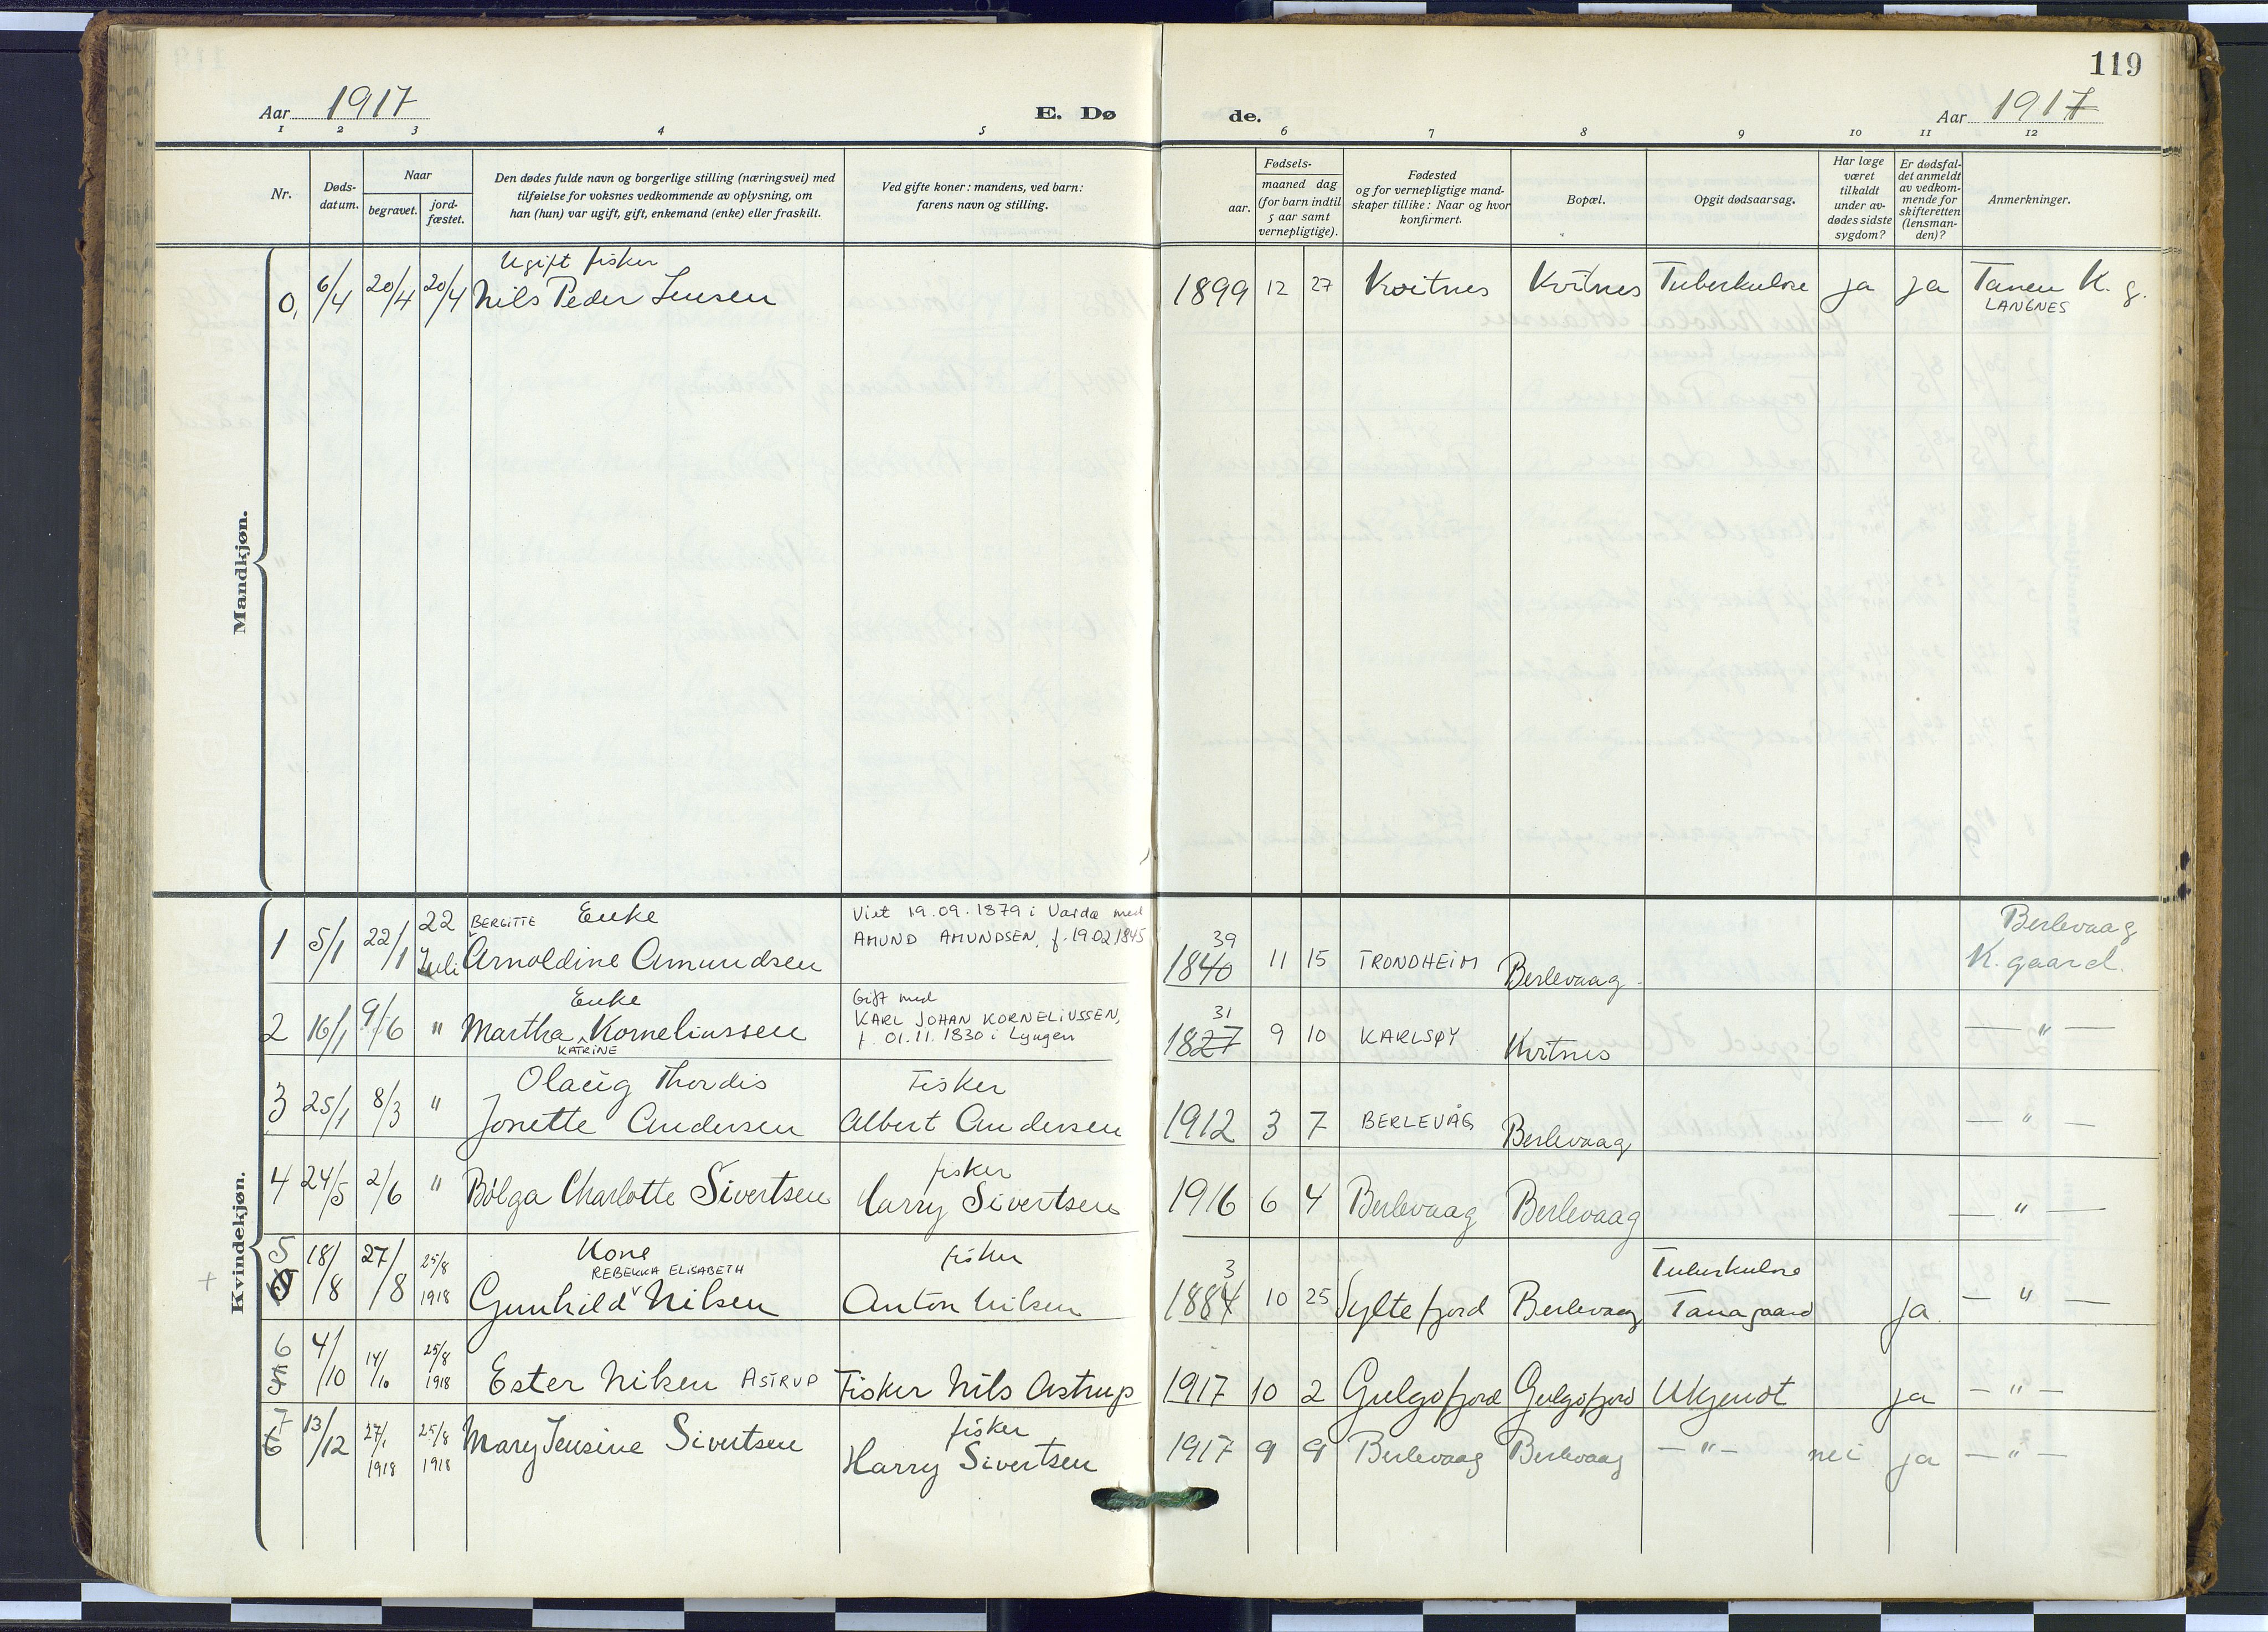 119
Aar 1917 E. Dø de. Aar 1917
1 2 3 4 5 6 7 8 9 10 11 12
Nr. Døds-datum. Naar begravet. jord-fæstet. Den dødes fulde navn og borgerlige stilling (næringsvei) med tilføielse for voksnes vedkommende av oplysning, om han (hun) var ugift, gift, enkemand (enke) eller fraskilt. Ved gifte koner: mandens, ved barn: farens navn og stilling. Fødsels- aar. maaned dag (for barn indtil 5 aar samt vernepligtige). Fødested og for vernepligtige mand-skaper tillike: Naar og hvor konfirmert. Bopæl. Opgit dødsaarsag. Har læge været tilkaldt under av-dødes sidste sygdom? Er dødsfal-det anmeldt av vedkom-mende for skifteretten (lensman-den)? Anmerkninger.
Mandkjøn.
Ugift fisker
0, 6/4 20/4 20/4 Nils Peder Jensen 1899 12 27 Kvitnes Kvitnes Tuberkulose ja ja Tanen K. g.
LANGNES
Kvindekjøn.
22 BERGITTE Enke Viet 19.09.1879 i Vardø med Berlevaag
1 5/1 22/1 Juli Arnoldine Amundsen AMUND AMUNDSEN, f. 19.02.1845 39 1840 11 15 TRONDHEIM Berlevaag K. gaard.
Enke Gift med
2 16/1 9/6 " Martha Korneliussen KARL JOHAN KORNELIUSSEN, 31 1827 9 10 KARLSØY Kvitnes — " —
KATRINE f. 01.11.1830 i Lyngen
Olaug Thordis Fisker
3 25/1 8/3 " Jonette Andersen Albert Andersen 1912 3 7 BERLEVÅG Berlevaag — " —
fisker
4 24/5 2/6 " Bolga Charlotte Sivertsen Harry Sivertsen 1916 6 4 Berlevaag Berlevaag — " —
5 Kone fisker 3 Tuberkulose
REBEKKA ELISABETH
+ 18/8 27/8 25/8 1918 Gunhild Nilsen Anton Nilsen 1884 10 25 Syltefjord Berlevaag Tanagaard ja — " —
6
5 4/10 14/10 25/8 1918 Ester Nilsen ASTRUP Fisker Nils Astrup 1917 10 2 Gulgofjord Gulgofjord Ukjendt ja — " —
7 fisker
6 13/12 27/1 1918 25/8 1918 Mary Jensine Sivertsen Harry Sivertsen 1917 9 9 Berlevaag Berlevaag — " — nei ja — " —